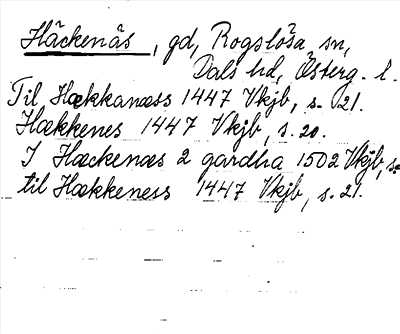 Häckenäs, gd, Rogslösa sn,
Dals hd, Österg. l.
Til Hækkanæss 1447 Vkjb, s. 21.
Hækkenes 1447 Vkjb, s. 20.
I Hæckenæs 2 gardha 1502 Vkjb, s.
til Hækkeness 1447 Vkjb, s. 21.